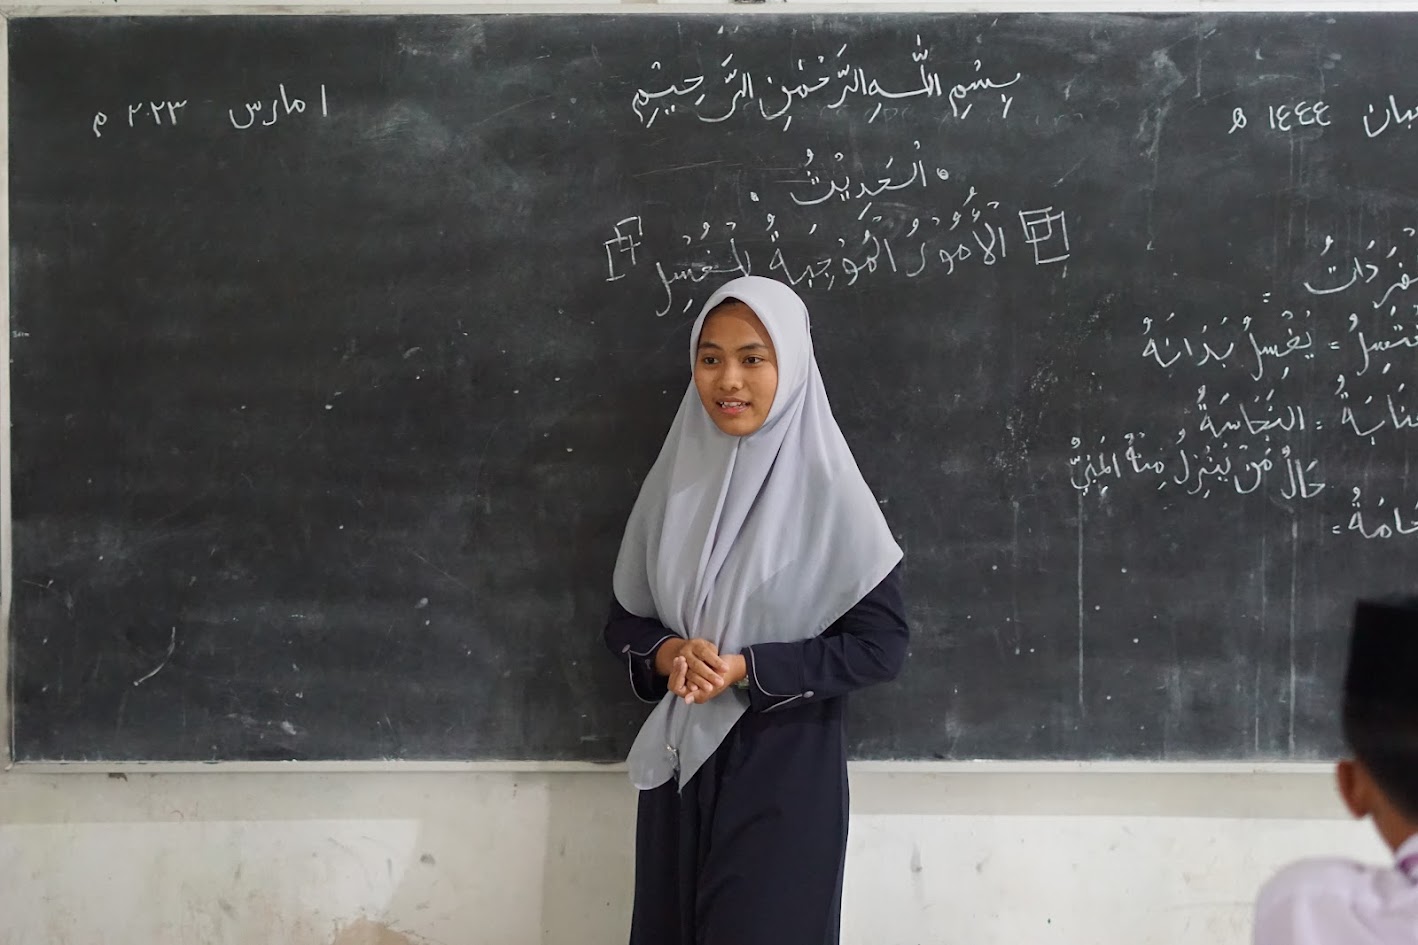 بِسْمِ اللّٰهِ الرَّحْمٰنِ الرَّحِيْمِ
بان ١٤٤٤ ه
١ مارس ٢٠٢٣ م
الْحَدِيْثُ
الْأُمُوْرُ الْمُوْجِبَةُ لِلْغُسْلِ
فْرَدَاتُ :
غْتَسِلُ = يَغْسِلُ بَدَانَهُ
نَابَةُ = النَّجَاسَةُ
حَالُ مَنْ يَنْزِلُ مِنْهُ الْمَنِيُّ
امَةُ =